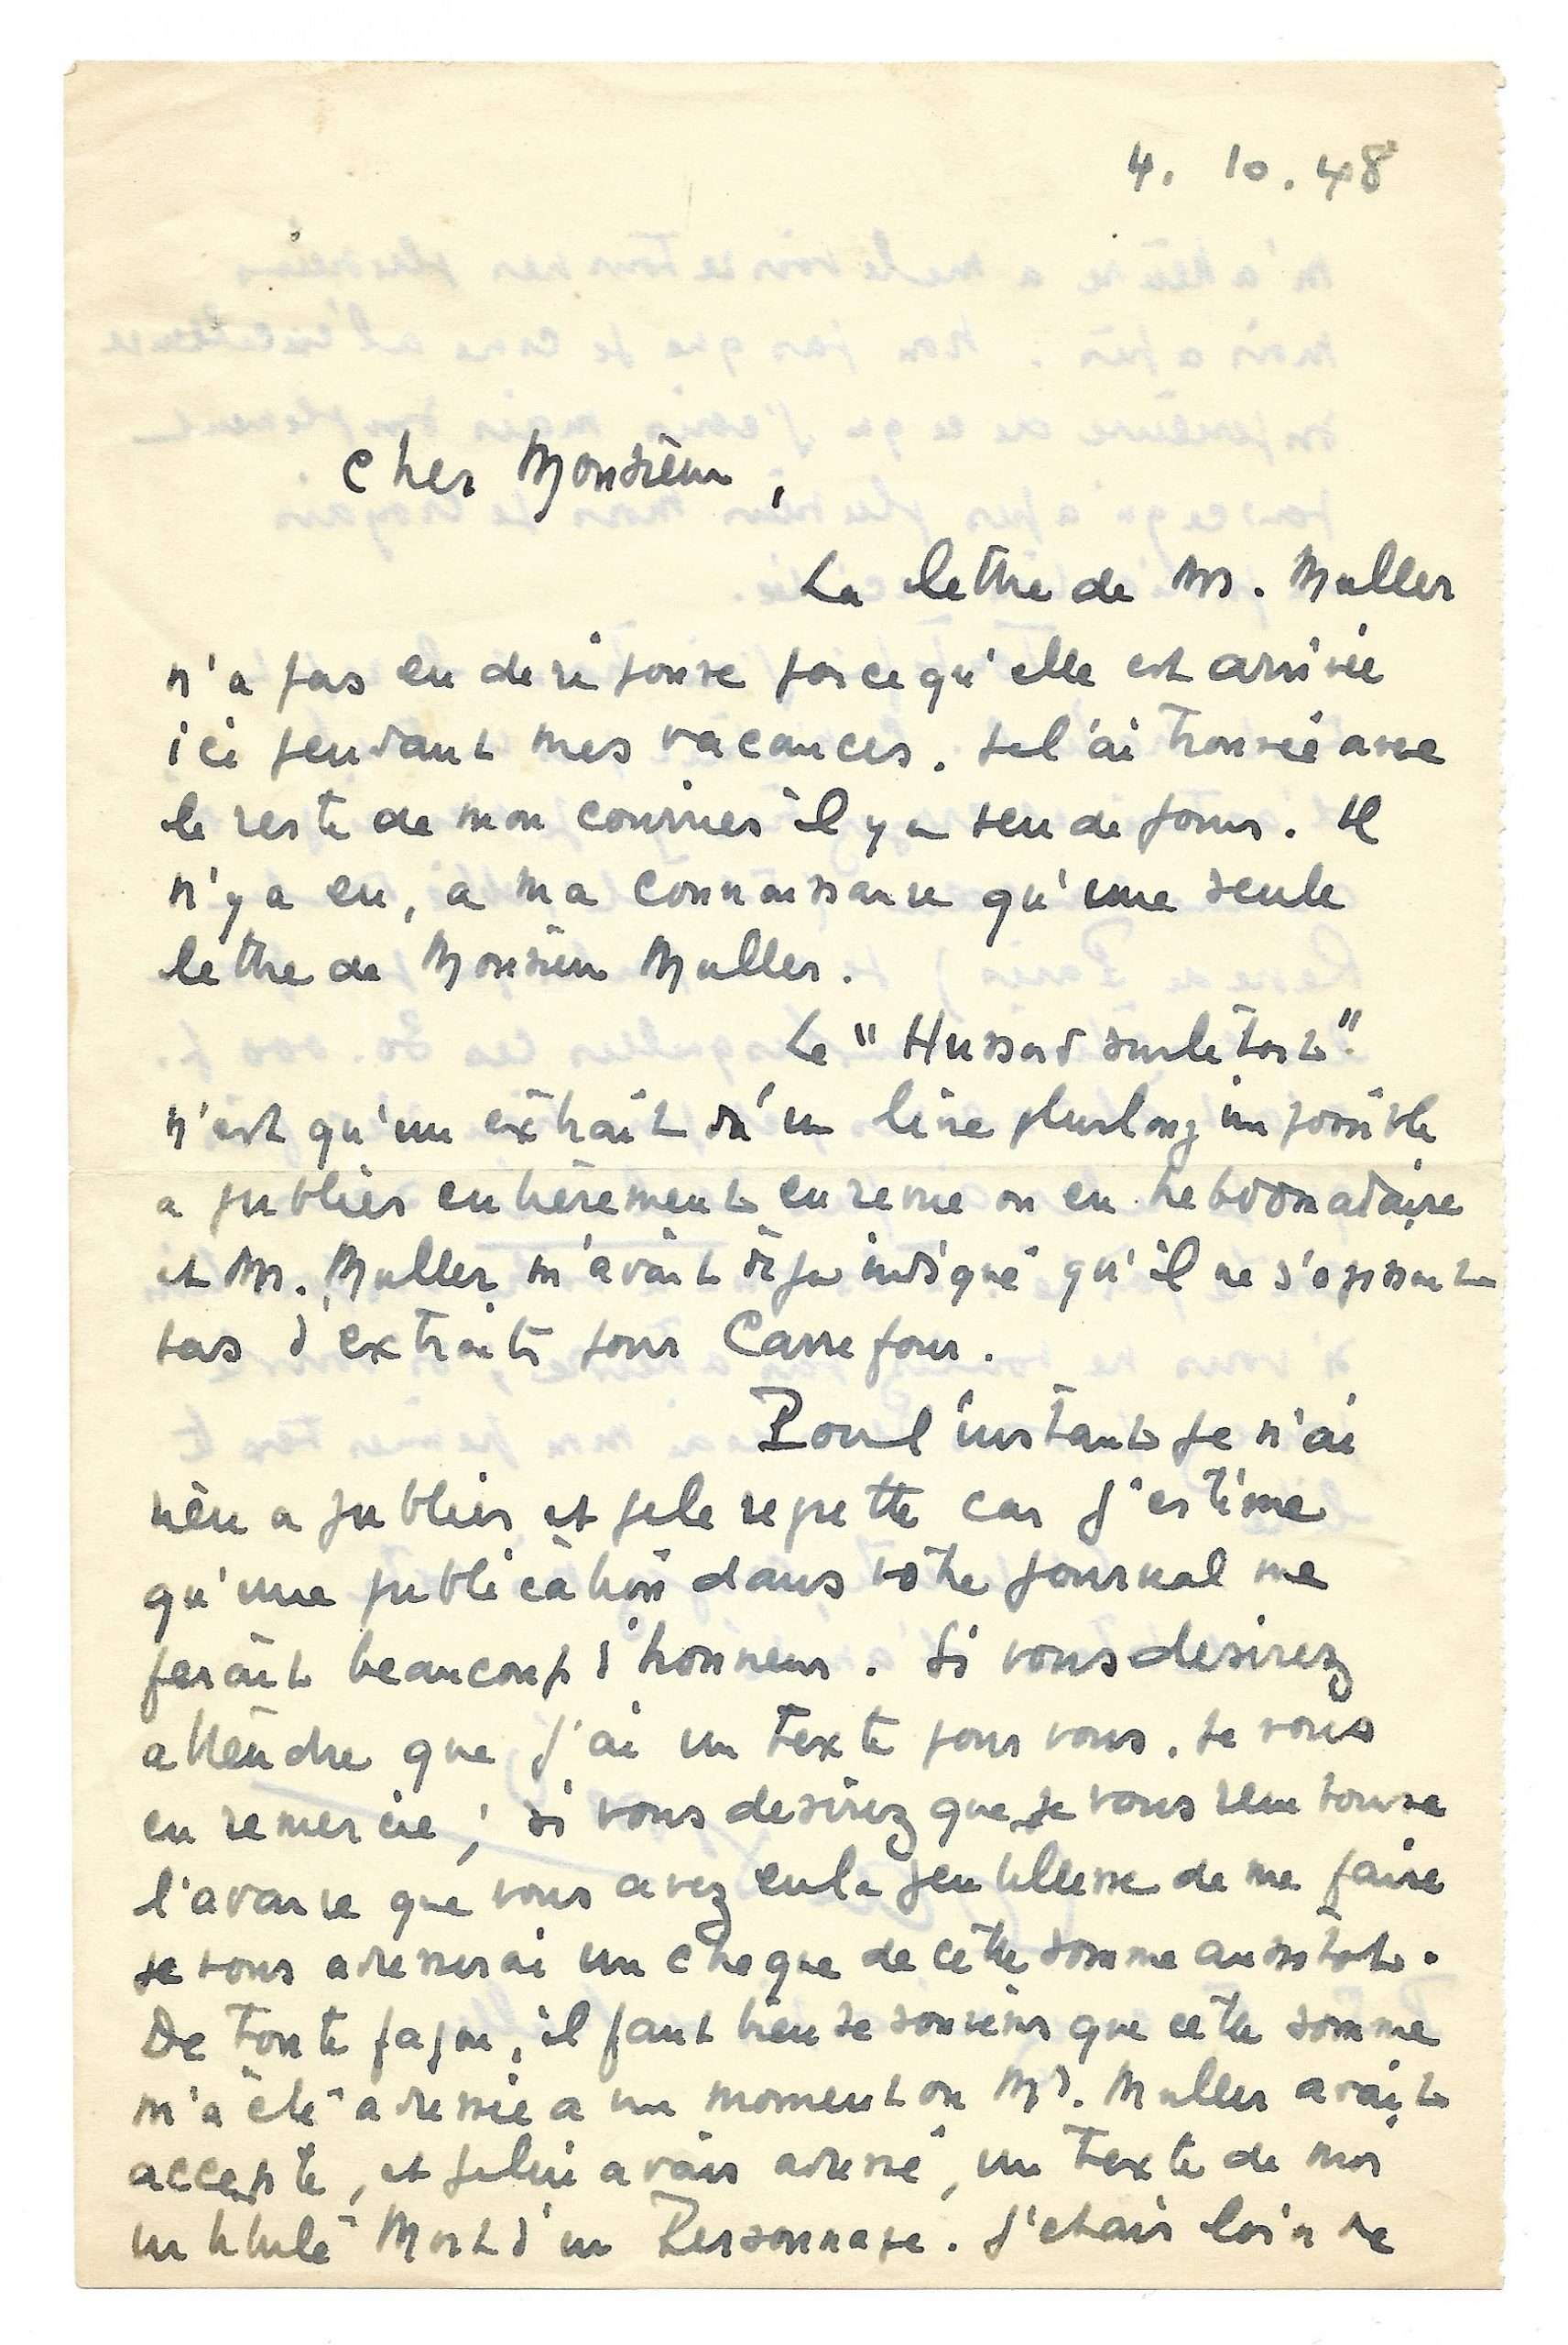 4. 10. 48
Cher Monsieur,
La lettre de M. Muller
n'a pas eu de réponse parce qu'elle est arrivée
ici pendant mes vacances. Je l'ai trouvée avec
le reste de mon courrier il y a peu de jours. Il
n'y a eu, a ma connaissance qu'une seule
lettre de Monsieur Muller.
Le "Hussard sur le toit"
n'est qu'un extrait d'un livre plus long impossible
a publier entièrement en revue ou en hebdomadaire
et M. Muller m'avait déja indiqué qu'il ne s'agissait
pas d'extraits pour Carrefour.
Pour l'instant je n'ai
rien a publier et je le regrette car j'estime
qu'une publication dans votre journal me
ferait beaucoup d'honneur. Si vous desirez
attendre que j'ai un texte pour vous, je vous
en remercie ; si vous desirez que je vous rembourse
l'avance que vous avez eu la gentillesse de me faire
je vous adresserai un cheque de cette somme aussitot.
De toute façon, il faut bien se souvenir que cette somme
m'a été adressée a un moment ou Mr. Muller avait
accepté, et je lui avais adressé, un texte de moi
intitulé Mort d'un Personnage. J'etais loin de